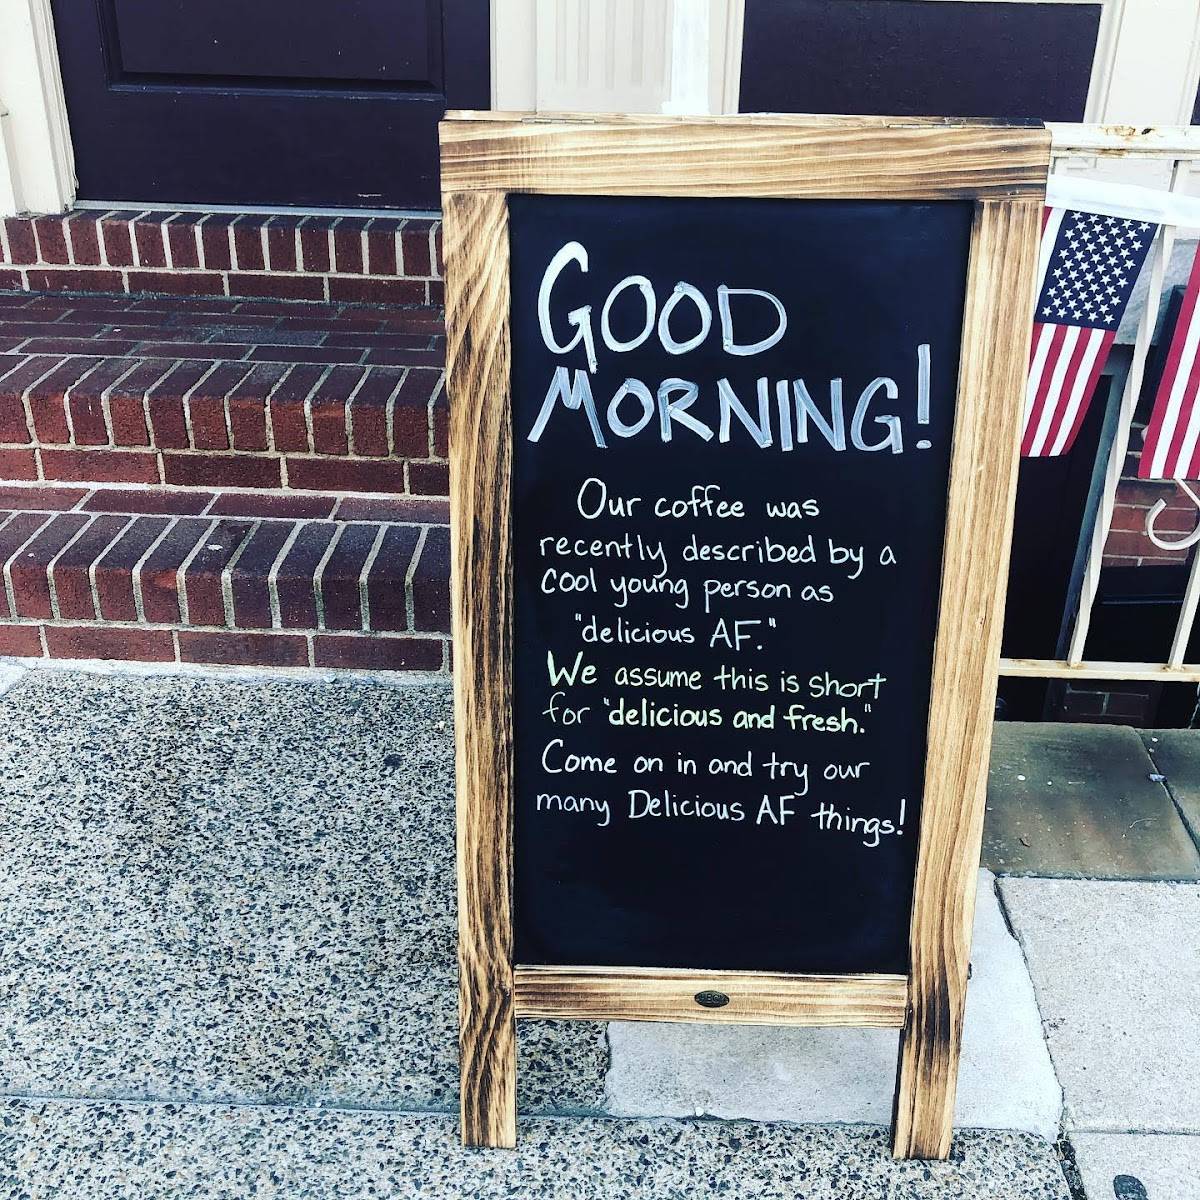 GOOD
MORNING!
Our coffee was
recently described by a
cool young person as
"delicious AF."
We assume this is short
for "delicious and fresh."
Come on in and try our
many Delicious AF things!